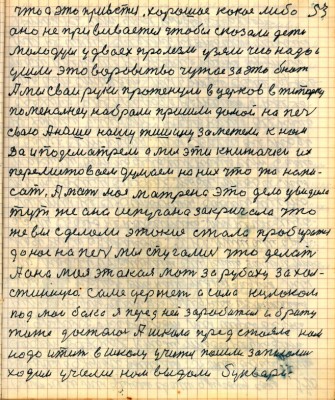 что это привести, хорошае какое либо 53
оно не прививается чтобы сказали дети
молодци у двоех пролезли узяли чио надо а
узяли это воровство чужое за это бют
А мы сваи руки протенули в церков в тетради
по
набрали пришли домой на печ
сваю А наши нашу тишину заметели к нам
Да и подсматрели а мы эти книжочки их
перелистоваем думаем на них что то напи-
сат, А мат моя матрена это дело увидила
тут же она испугана закричала что
же вы зделали этокие стала пробиратся
до нас на печ мы спугалис что делат
А она моя этакая мат за рубаху за хол-
стинную саме держет а сама кулаком
под мои бока я перед ней заработал и брату
тоже досталос А школа предстояла нам
надо итит в школу учится пошли записалис
ходим учемся нам выдали буквари-